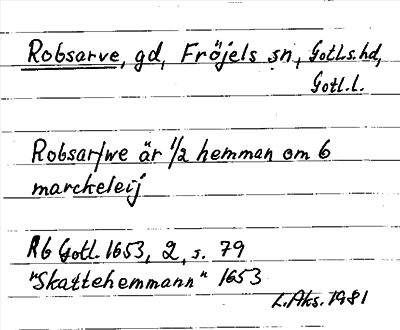 Robsarve, gd, Fröjels sn, Gotl.s. hd,
Gotl. l.
Robsar/we är 1/2 hemman om 6
marckeleij
Rb Gotl. 1653, 2, s. 79
"Skattehemmann" 1653
L. Aks. 1981